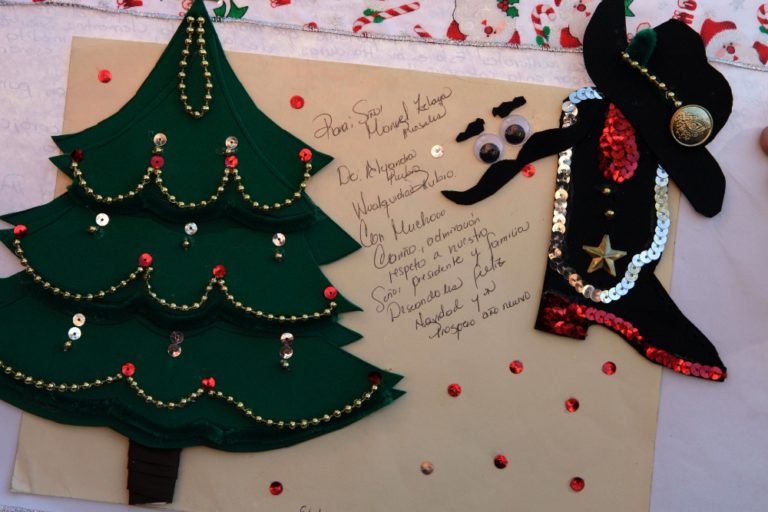 Para: Sño:
Manuel Zelaya
Rosales
De: Alejandra
Rubio
Walquidia Rubio.
Con Muchooo
Cariño, admiración
respeto a nuestro
Señor presidente y familia
Deseandoles feliz
Navidad y un
prospero año nuevo